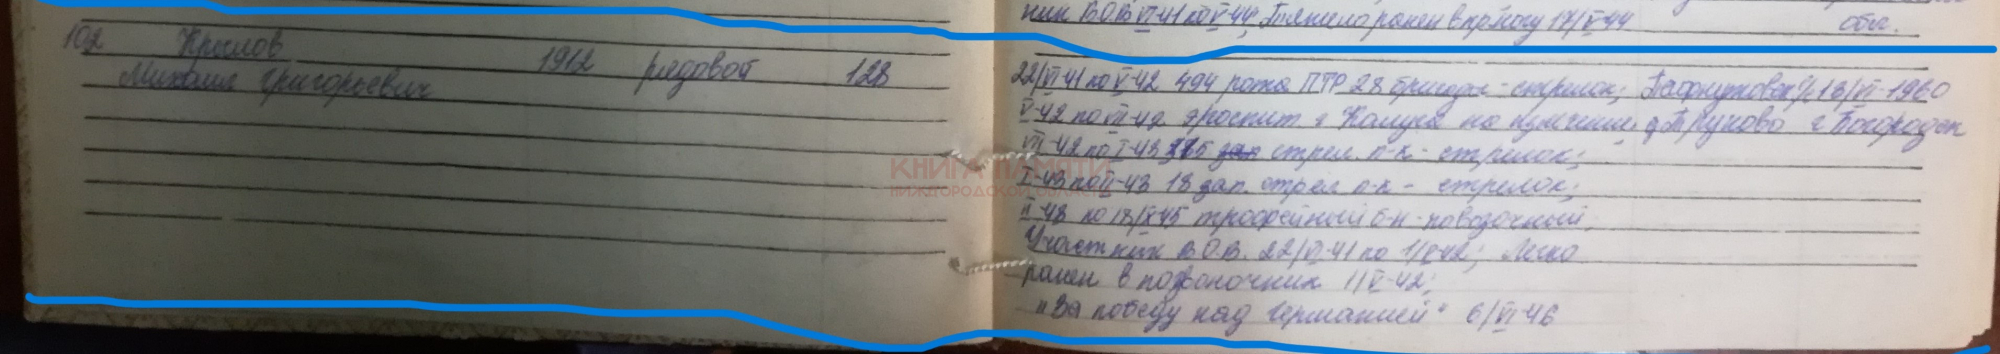 ник В.О.В. VI-41 по V-44; Тяжело ранен в 17/V-44 обл.
102 Крылов 1912 рядовой 128
Михаил Григорьевич
22/VI-41 по V-42 494 рота ПТР 28 бригада - стрелок; 18/VI-1960
V-42 по VII-42 госпит г Калуга на излечении; д Трухово г Богородск
VII-42 по I-43 зап стрел. п-к - стрелок;
I-43 по II-43 18 зап. стрел п-к - стрелок;
II-43 по 18/X-45 трофейный б-н - повозочный.
Участник В.О.В. 22/VI-41 по 1/V-42; Легко
ранен в позвоночник 1/V-42;
"За победу над Германией" 6/VI-46
КНИГА ПАМЯТИ
НИЖЕГОРОДСКОЙ ОБЛАСТИ